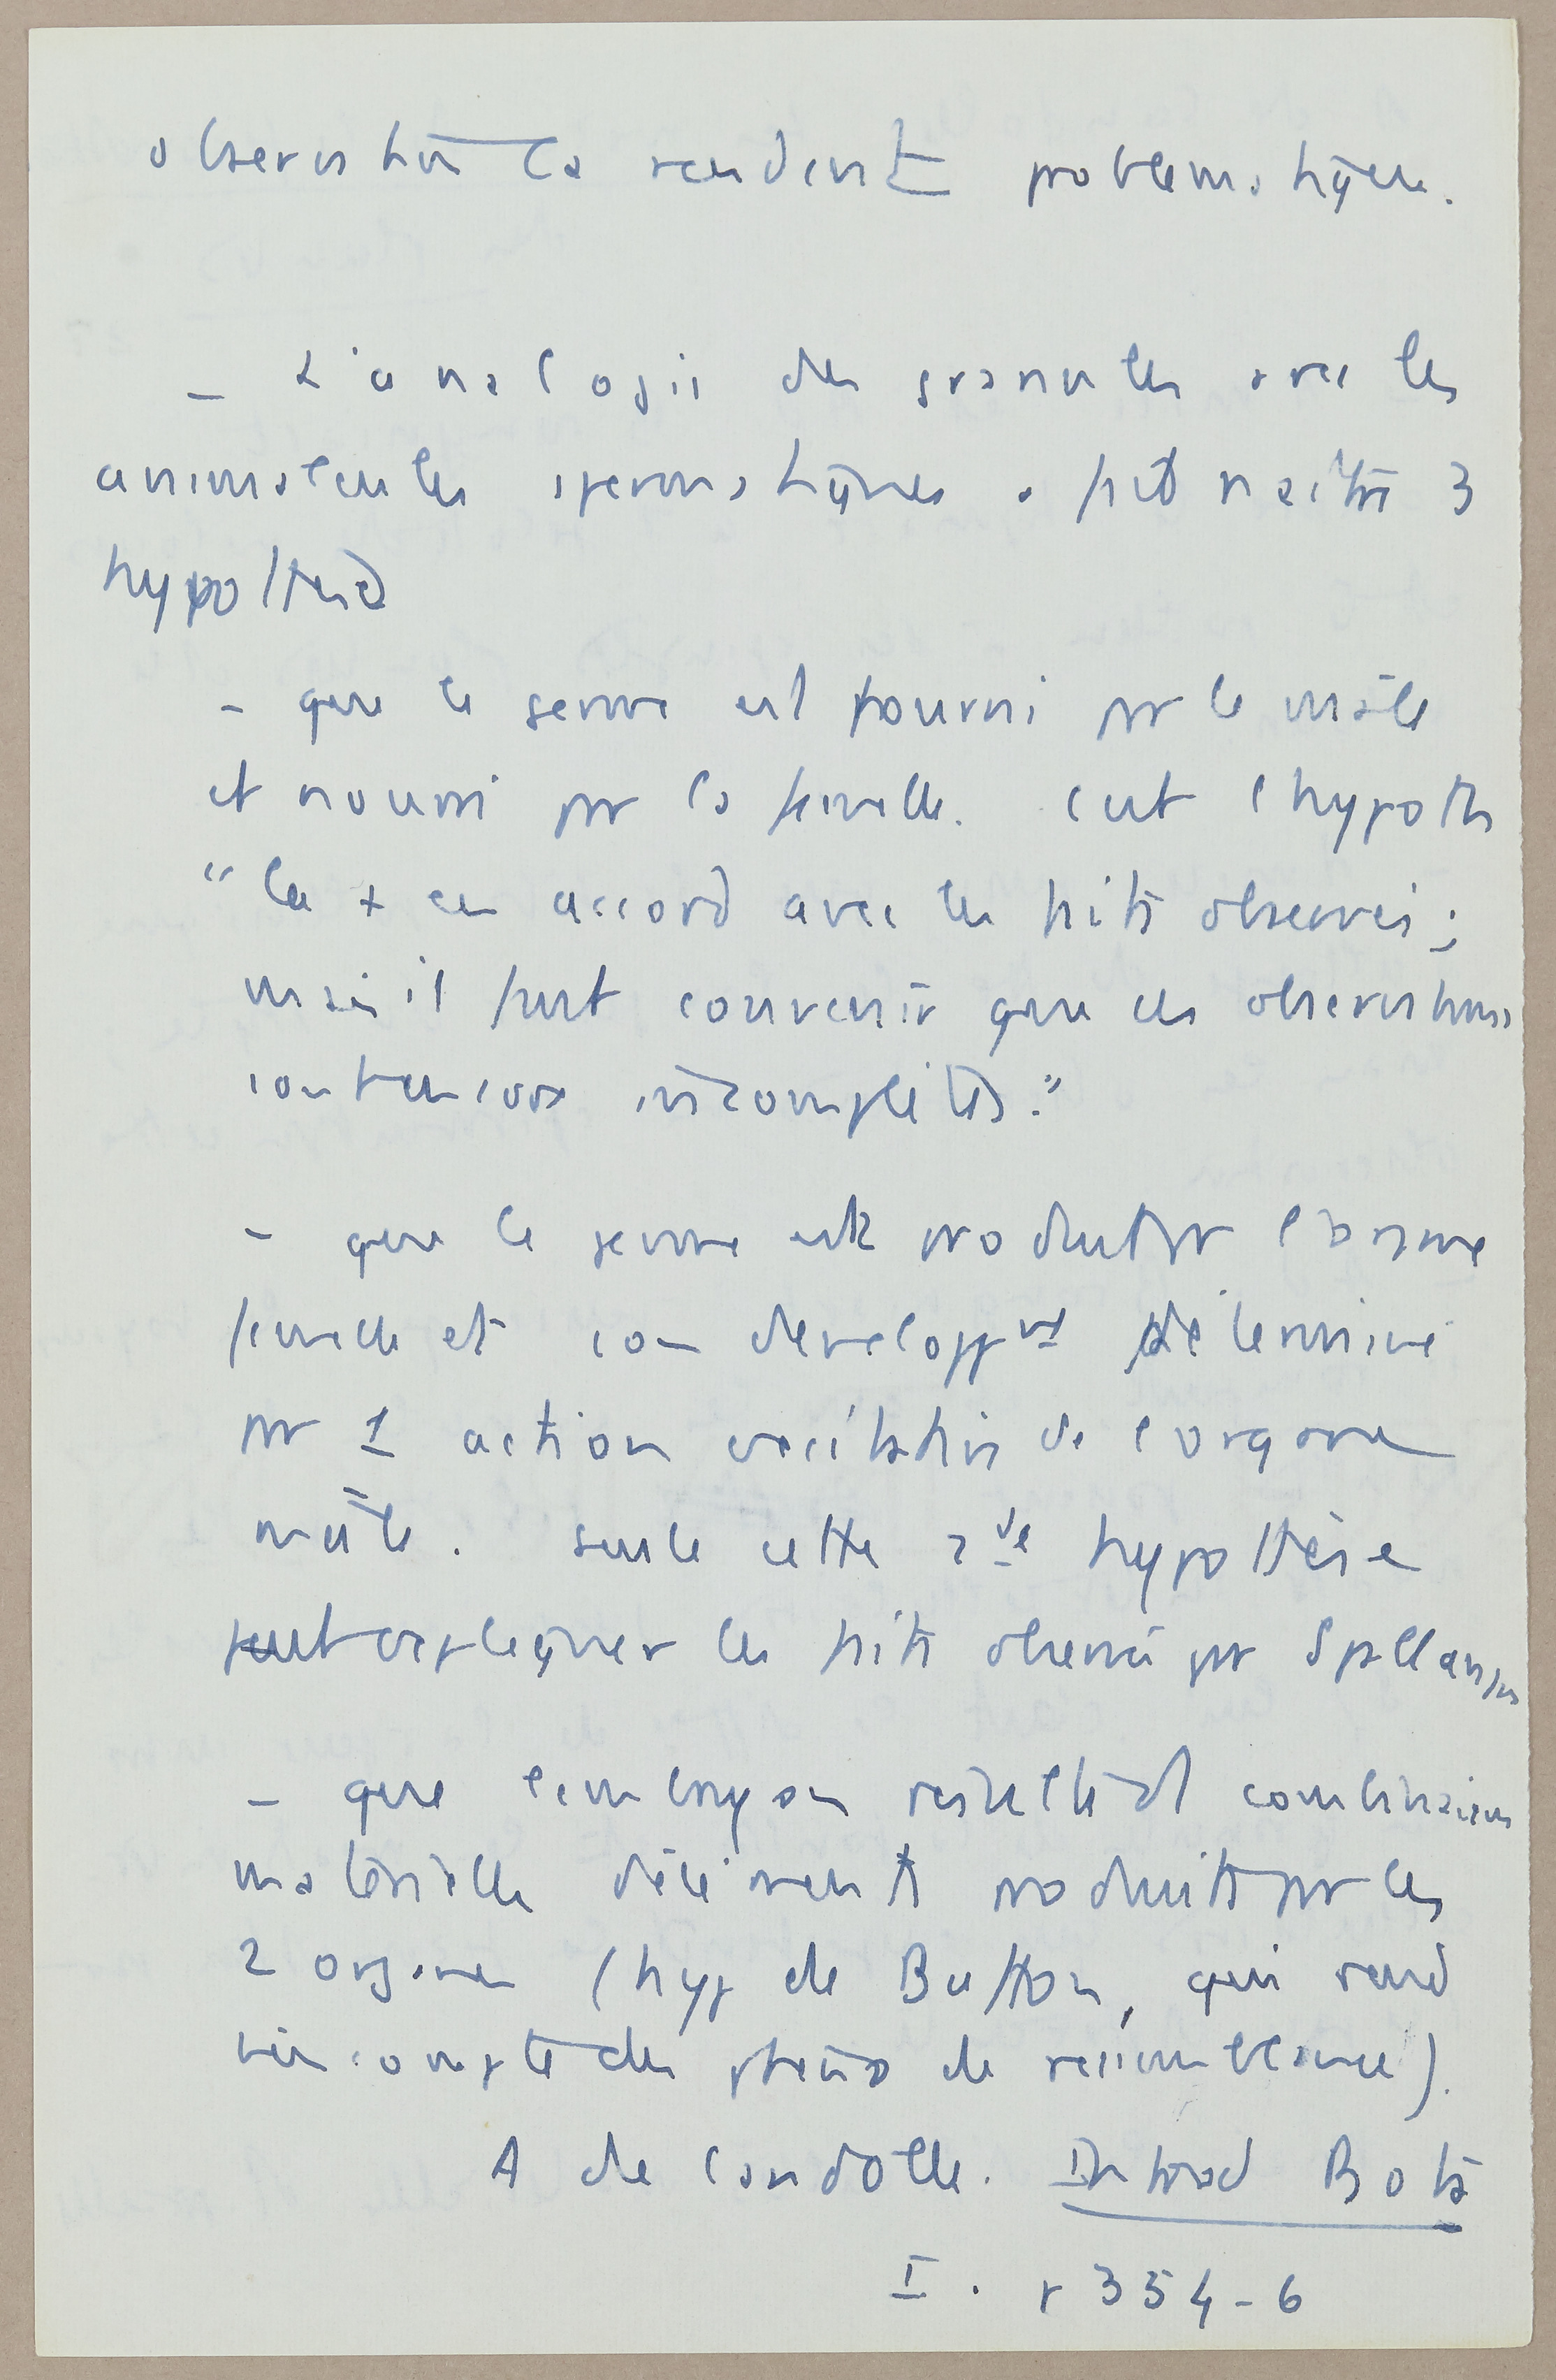 observation la rendent problematique.
- L'analogie des granules avec les
animalcules spermatiques a fait naître 3
hypothèses
- que le germe est fourni par le mâle
et nourri par la femelle. C'est l'hypoth
"la + en accord avec les faits observés ;
mais il faut convenir que ces observations
sont encore incomplètes."
- que le germe est produit par l'organe
femelle et son developpmt déterminé
par 1 action excitatrice de l'organe
mâle. Seule cette 2de hypothèse
peut expliquer les faits observés par Spallanzani
- que l'embryon résulte d'1 combinaison
matérielle d'éléments produits par les
2 organes (hyp de Buffon, qui rend
compte des phéno de ressemblance).
A de Candolle. Introd Bota
I. p 354-6